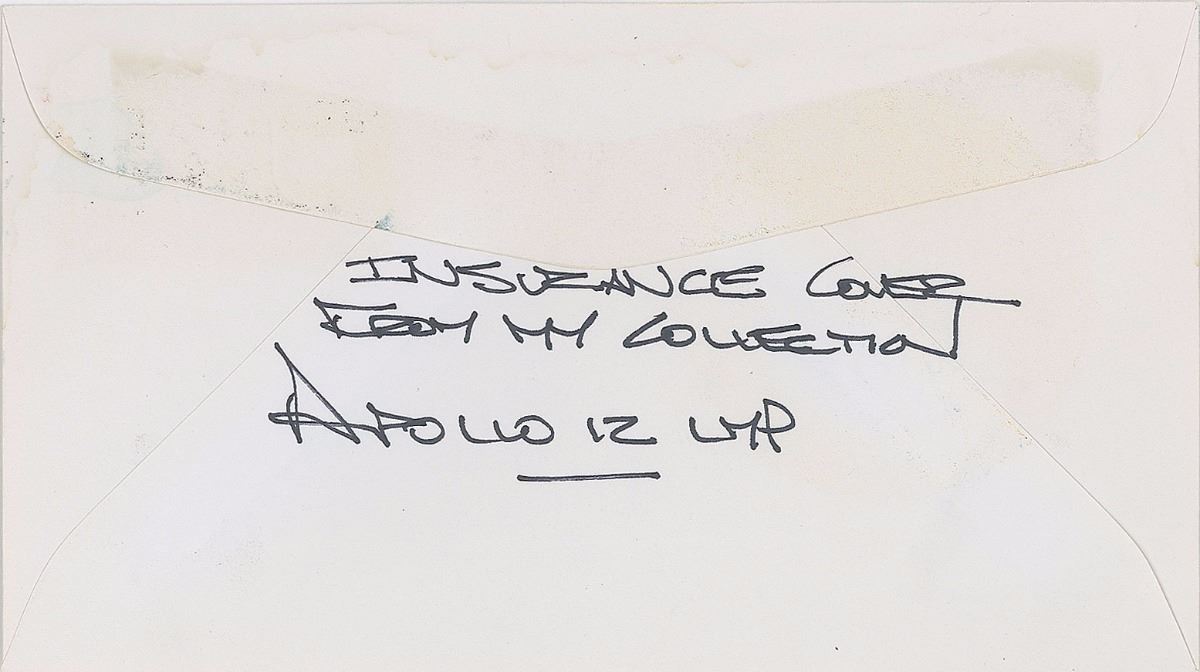 INSURANCE COVER
FROM MY COLLECTION
APOLLO 12 LMP